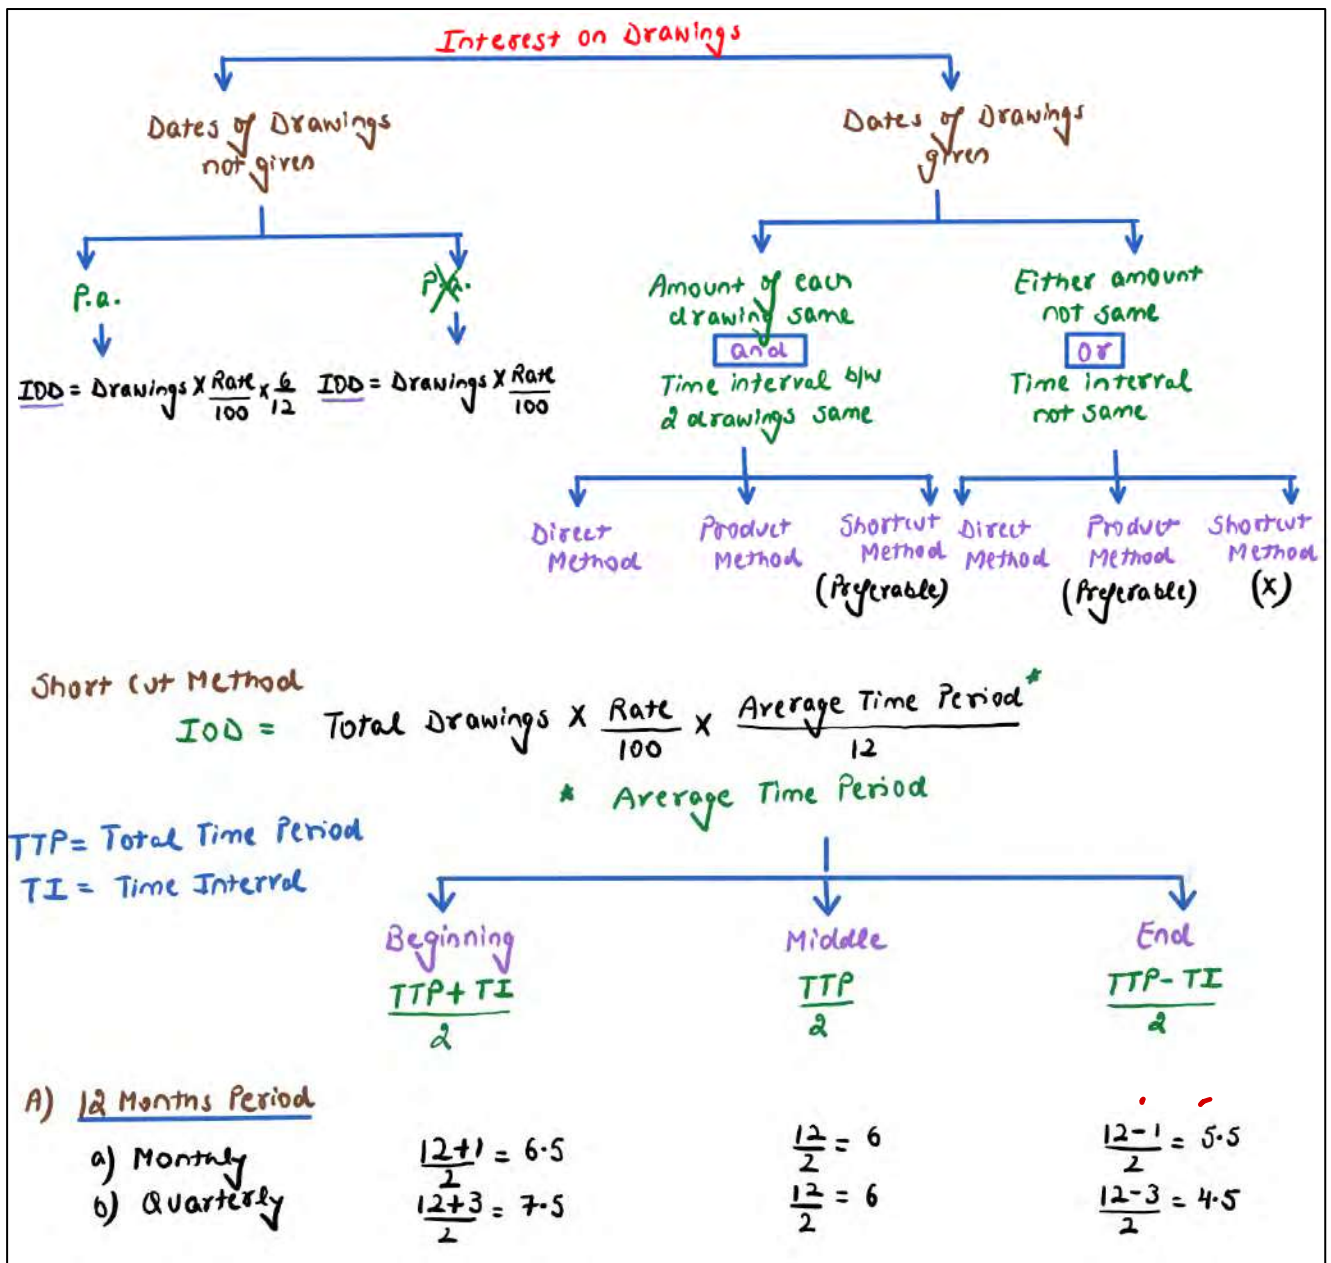 Interest on Drawings
Dates of Drawings
not given
Dates of Drawings
given
P.a.
P.a.
IOD = Drawings × Rate/100 × 6/12
IOD = Drawings × Rate/100
Amount of each
drawing same
and
Time interval b/w
2 drawings same
Either amount
not same
or
Time interval
not same
Direct
Method
Product
Method
Shortcut
Method
(Preferable)
Direct
Method
Product
Method
(Preferable)
Shortcut
Method
(x)
Short Cut Method
IOD = Total Drawings × Rate/100 × Average Time Period*/12
* Average Time Period
TTP = Total Time Period
TI = Time Interval
Beginning
TTP + TI/2
Middle
TTP/2
End
TTP - TI/2
A) 12 Months Period
a) Monthly 12+1/2 = 6.5 12/2 = 6 12-1/2 = 5.5
b) Quarterly 12+3/2 = 7.5 12/2 = 6 12-3/2 = 4.5